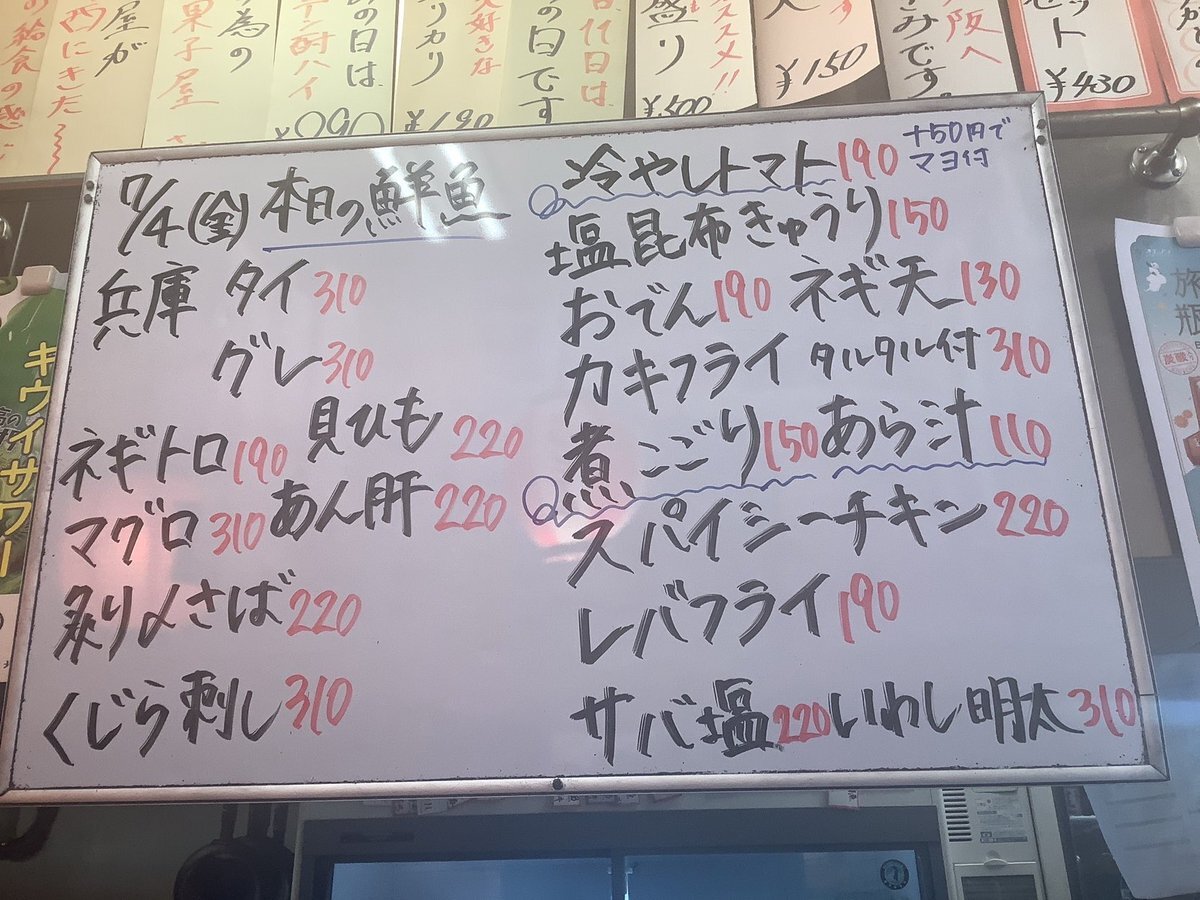 の給食の感じ
西にきた~
屋が
菓子屋
為の
テン酎ハイ
の日は
¥190
大好きな
の日です
11日は
盛り
オススメ!!
¥500
¥150
みです。
阪へ
セット
¥430
7/4(金) 本日の鮮魚
兵庫 タイ 310
グレ 310
ネギトロ 190 貝ひも 220
マグロ 310 あん肝 220
炙り〆さば 220
くじら刺し 310
冷やしトマト 190 +50円で
マヨ付
塩昆布きゅうり 150
おでん 190 ネギ天 130
カキフライ タルタル付 310
煮こごり 150 あら汁 110
スパイシーチキン 220
レバフライ 190
サバ塩 220 いわし明太 310
キウイサワー
旅
瓶